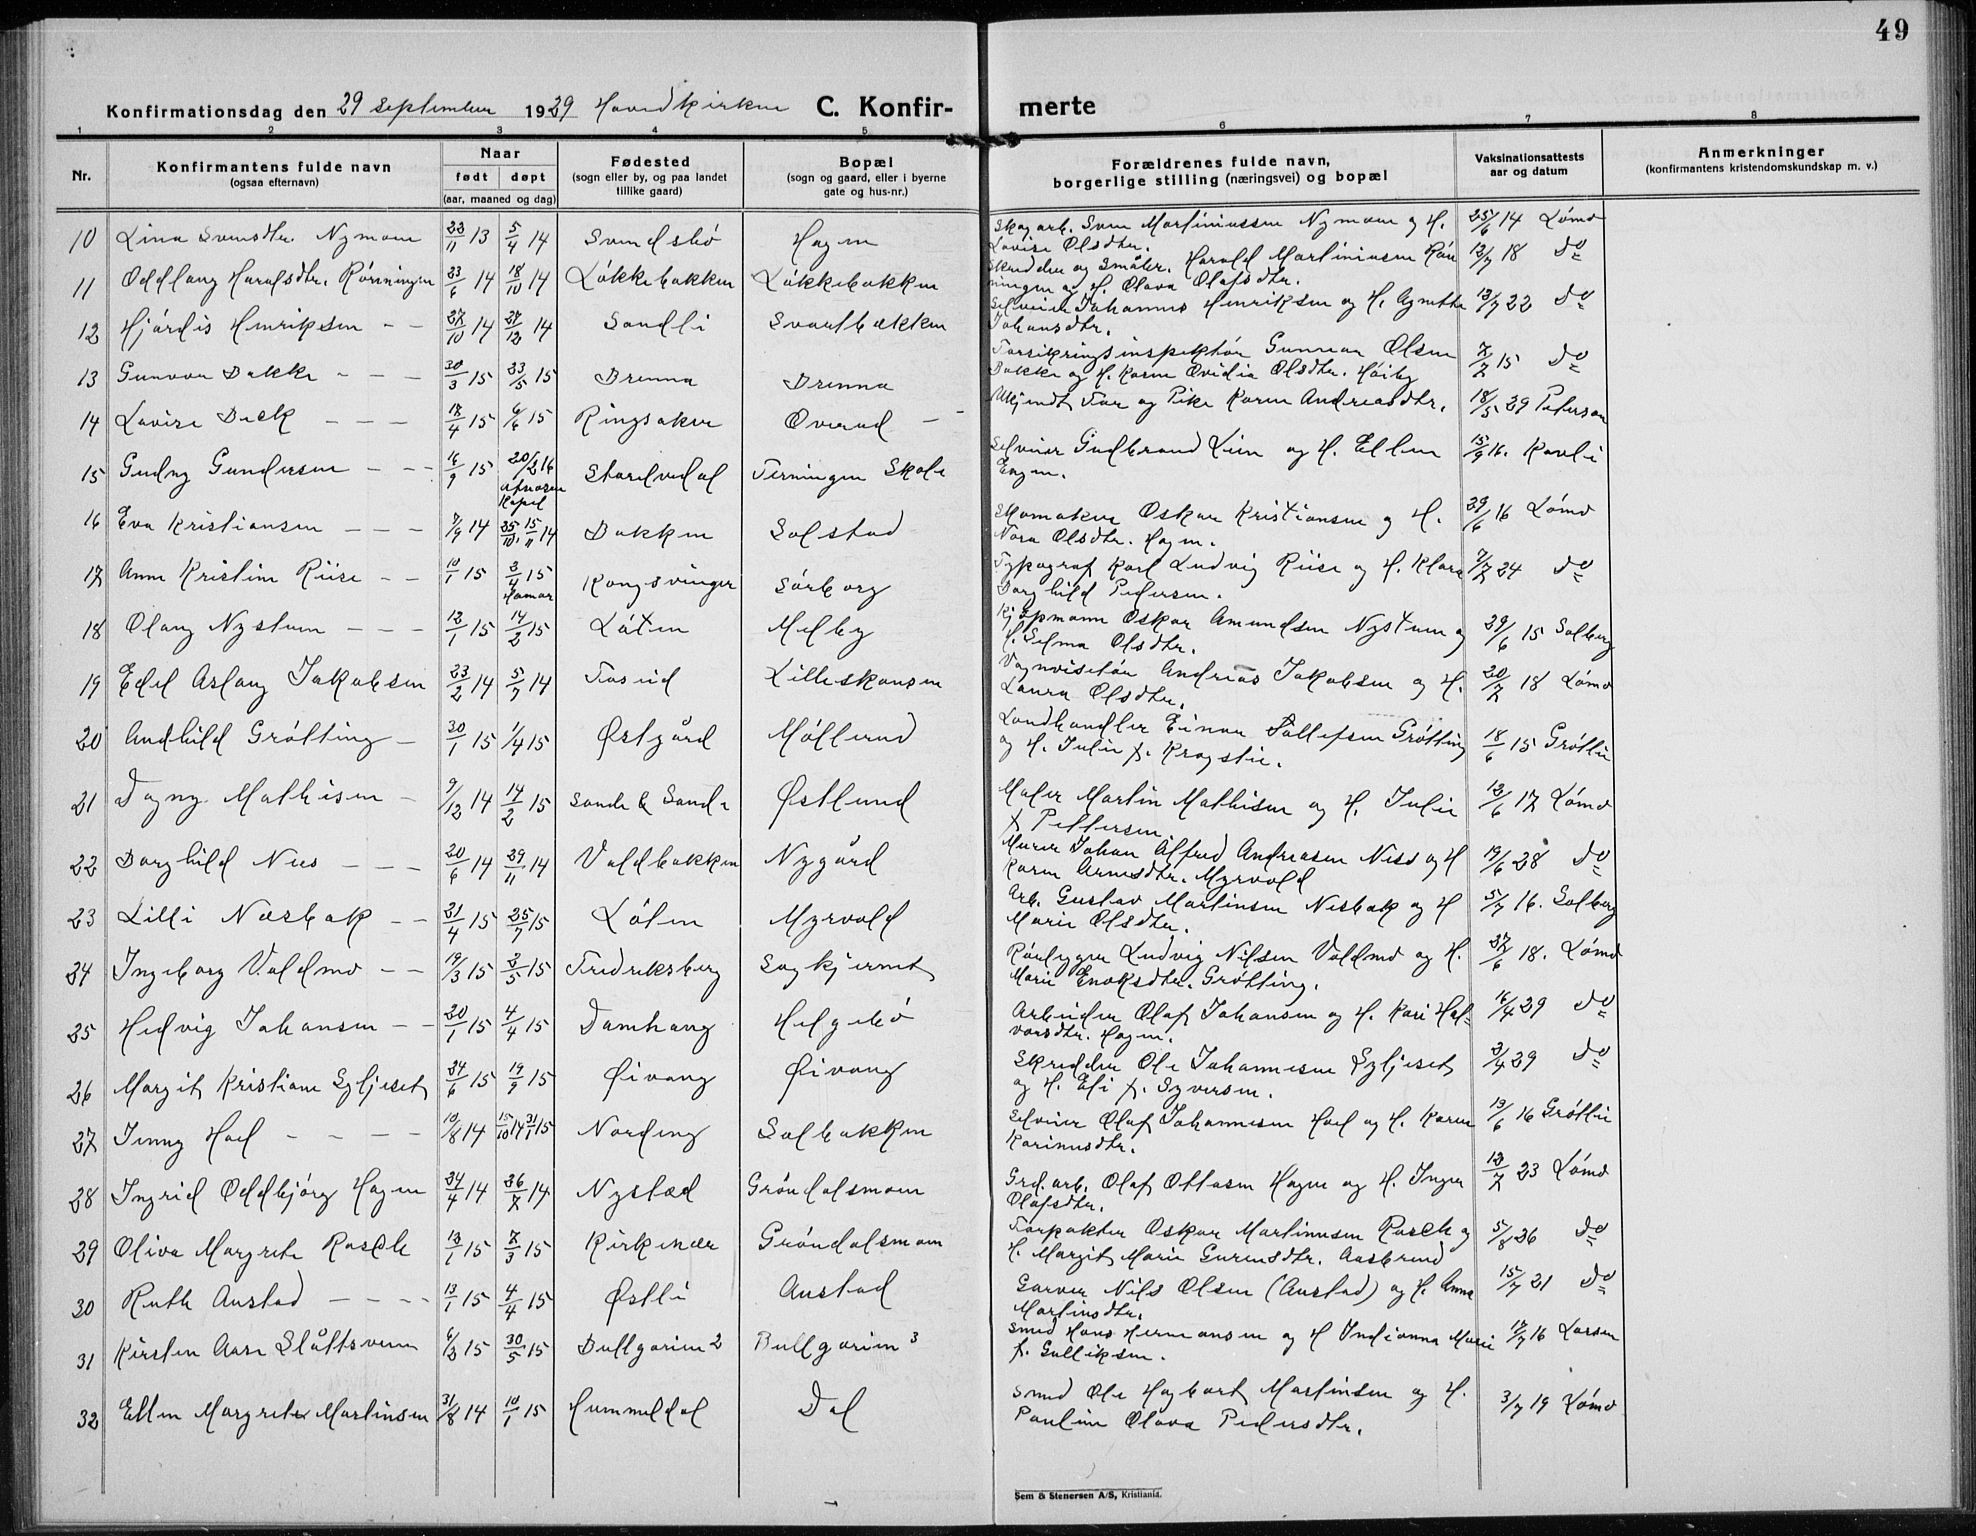 49
Konfirmationsdag den 29 september 1929 Hovedkirken C. Konfir- merte
1 2 3 4 5 6 7 8
Nr.
Konfirmantens fulde navn
(ogsaa efternavn)
Naar
født døpt
(aar, maaned og dag)
Fødested
(sogn eller by, og paa landet
tillike gaard)
Bopæl
(sogn og gaard, eller i byerne
gate og hus-nr.)
Forældrenes fulde navn,
borgerlige stilling (næringsvei) og bopæl
Vaksinationsattests
aar og datum
Anmerkninger
(konfirmantens kristendomskundskap m. v.)
10 Lina Svensdtr. Nymoen 23/11 13 5/4 14 Svendsbø Hagen Skogarb. Sven Martiniussen Nymoen og H. 25/6 14 Lømo
Lovise Olsdtr.
11 Oddlaug Haraldsdtr. Rønningen 23/6 14 18/10 14 Løkkebakken Løkkebakken Skredder og småbr. Harald Martiniusen Røn 12/7 18 do
ningen og H. Olava Olafsdtr.
12 Hjørdis Henriksen - - 27/10 14 27/12 14 Sandli Svartbækken Selveier Johannes Henriksen og H. Agnethe 13/7 22 do
Johansdtr.
13 Gunvor Bakke - - - 30/3 15 23/5 15 Brenna Brenna Forsikringsinspektør Gunnar Olsen 7/7 15 do
Bakke og H. Karen Ovidia Olsdtr. Høiby
14 Lovise Beck - - - 18/4 15 6/6 15 Ringsaker Overud - Ukjendt Far og Pike Karen Andreasdtr. 18/5 29 Peterson
15 Gudny Gundersen - - - 16/9 15 20/2 16 Storelvedal Terningen Skole Selveier Gudbrand Lien og H. Ellen 15/9 16. Kavli
Kapel Engen.
16 Eva Kristiansen - - - 7/9 14 25/10, 15/11 14 Bakken Solstad Skomaker Oskar Kristiansen og H. 29/6 16 Lømo
Nora Olsdtr. Hagen.
17 Anne Kristine Riise - - 10/1 15 3/4 15 Kongsvinger Sørborg Typograf Karl Ludvig Riise og H. Klara 7/7 24 do
Hamar Borghild Pedersen.
18 Olaug Nystuen - - - 12/1 15 14/2 15 Løten Melby Kjøpmann Oskar Amundsen Nystuen og 29/6 15 Solberg
H. Selma Olsdtr.
19 Edel Aslaug Jakobsen 23/2 14 5/7 14 Fosud Lilleskansen Vognvisitør Andreas Jakobsen og H. 20/7 18 Lømo
Laura Olsdtr.
20 Andhild Grøtting - 30/1 15 1/4 15 Østgård Møllerud Landhandler Einar Tollefsen Grøtting 18/6 15 Grøtlie
og H. Julie f. Kragstie.
21 Dagny Mathisen - 9/12 14 14/2 15 Sande & Sande Østlund Maler Martin Mathisen og H. Julie 12/6 17 Lømo
f. Pettersen
22 Borghild Nies - - - 20/6 14 29/11 14 Voldbakken Nygård Murer Johan Alfred Andreasen Niss og H 19/6 28 do
Karen Arnesdtr. Myrvold
23 Lilli Næsbak - - 21/4 15 25/7 15 Løten Myrvold Arb. Gustav Martinsen Nesbak og H 5/7 16. Solberg
Marie Olsdtr.
24 Ingeborg Voldmo - - 19/3 15 2/5 15 Fredriksberg Sagkjernet Rørlegger Ludvig Nilsen Voldmo og H. 27/6 18. Lømo
Marie Enoksdtr. Grøtting.
25 Hedvig Johansen - - 20/1 15 4/4 15 Damhaug Helgebø Arbeider Olaf Johansen og H. Kari Hal- 16/4 29 do
vorsdtr. Hagen.
26 Margit Kristiane Syljeset 24/6 15 19/9 15 Øivang Øivang Skredder Ole Johannesen Syljeset 3/4 29 do
og H. Eli f. Syversen.
27 Jenny Hoel - - - - 10/8 14 15/10 14 31/1 15 Nordeng Solbakken Selveier Olaf Johannesen Hoel og H. Karen 19/6 16 Grøtlie
Karinusdtr.
28 Ingrid Oddbjørg Hagen 24/4 14 26/7 14 Nystad Grøndalsmoen Grd. arb. Olaf Ottosen Hagen og H. Inger 12/7 23 Lømo
Olafsdtr.
29 Oliva Margrete Rasch 13/1 15 7/3 15 Kirkenær Grøndalsmoen Forpakter Oskar Martinusen Rasch og 5/8 26 do
H. Margit Marie Gurensdtr. Aasbrend
30 Ruth Austad - - - - 13/1 15 4/4 15 Østli Austad Garver Nils Olsen (Austad) og H. Anna 15/7 21 do
Martinsdtr.
31 Kirsten Aase Slåttsveen 6/3 15 30/5 15 Bullgarien 2 Bullgarien 3 Smed Hans Hermansen og H Indianna Marie 17/7 16 Larsen
f. Gulliksen.
32 Ellen Margrete Martinsen 31/8 14 10/1 15 Hummeldal Dal Smed Ole Hagbart Martinsen og H. 3/7 19 Lømo
Pauline Olava Pedersdtr.
Sem & Stenersen A/S, Kristiania.